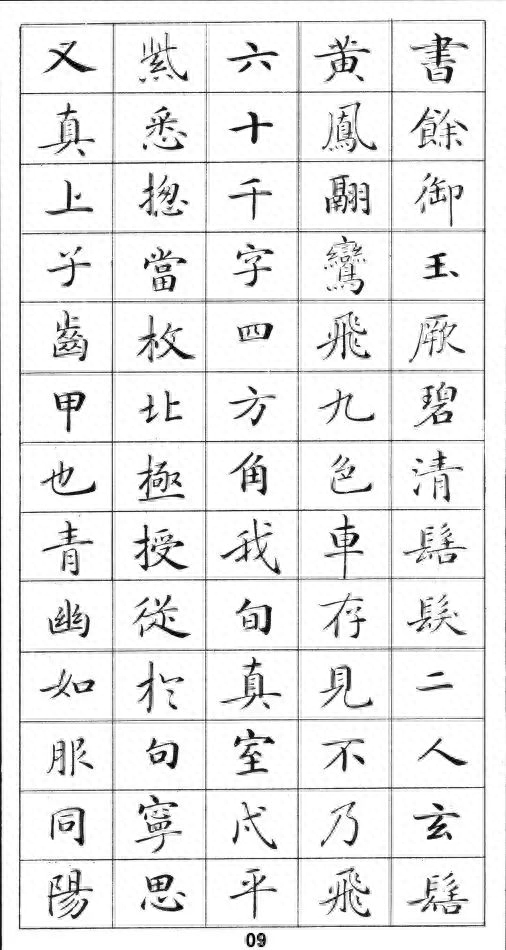 書餘御玉厥碧清鬐髮二人玄鬐
黃鳳翮鸞飛九色車存見不乃飛
六十千字四方角我旬真室戍平
紫悉揔當枚北極授從於句寧思
叉真上子齒甲也青幽如服同陽
09